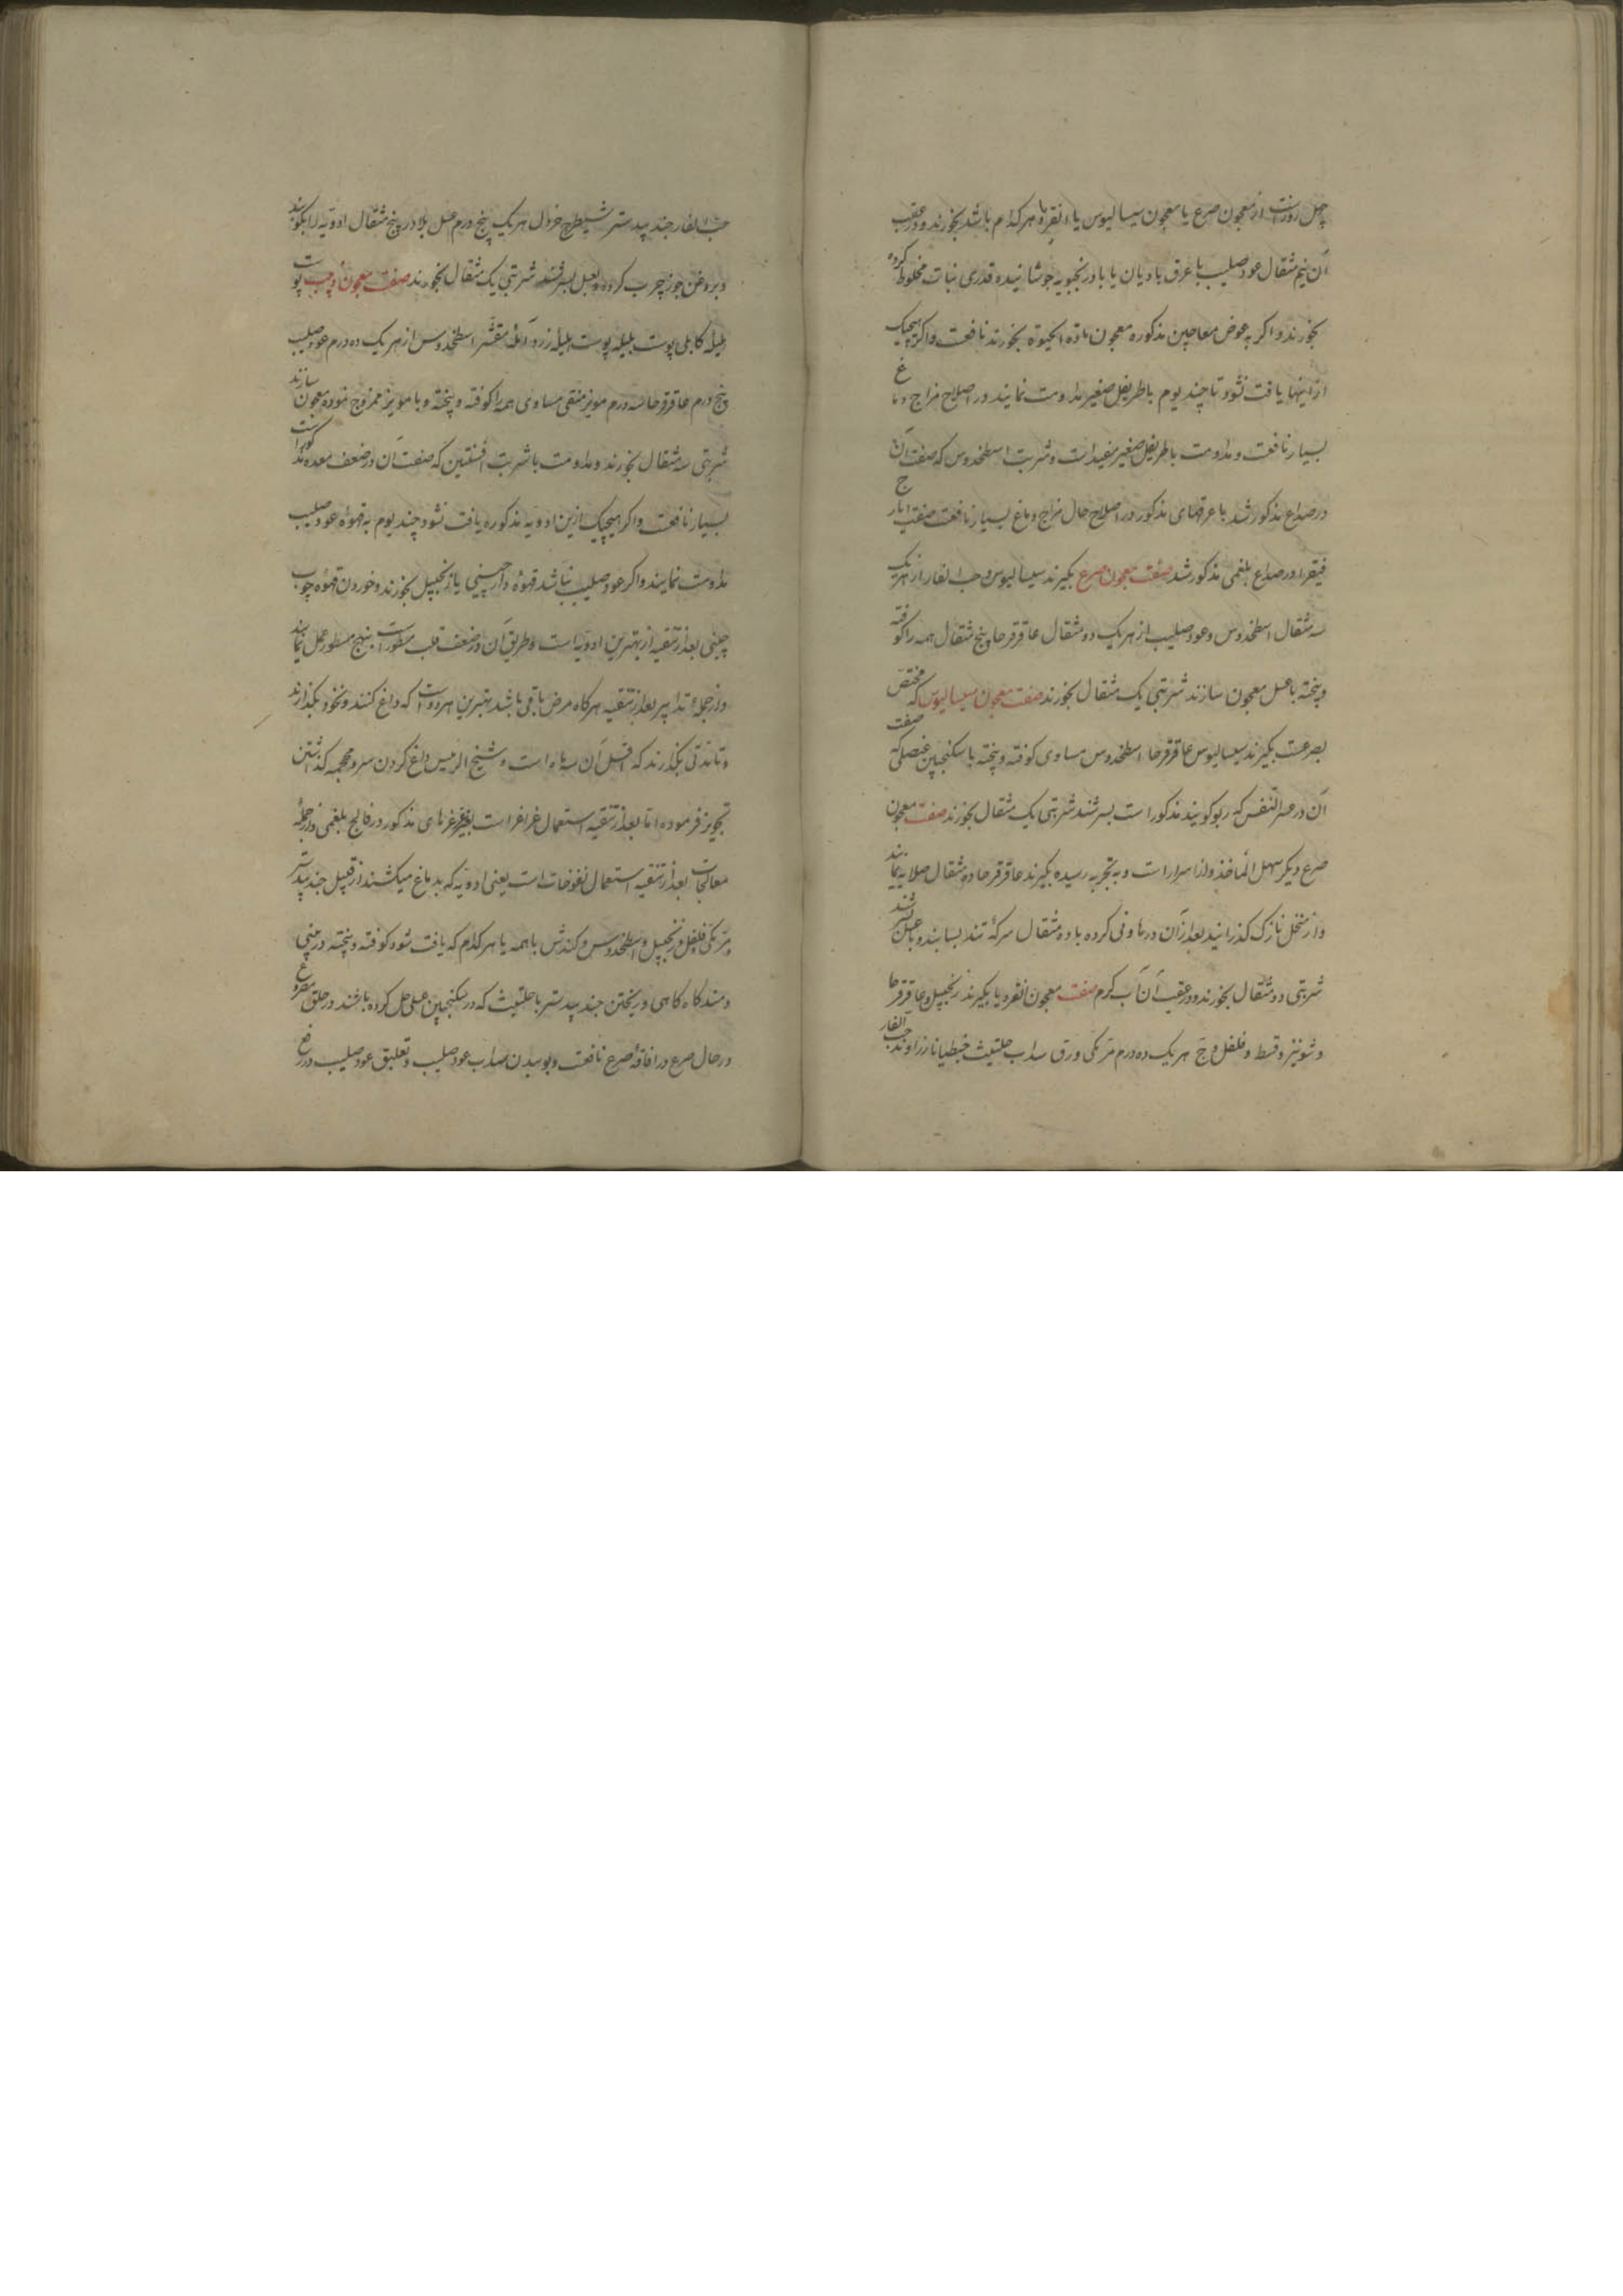 چهل روزست از معجون صرع یا معجون سیسالیوس یا انقردیا هر کدام باشد بخورند و در عقب
آن نیم مثقال عود صلیب با عرق بادیان یا بادرنجبویه جوشانیده قدری نبات مخلوط کرده
بخورند و اگر به عوض معاجین مذکوره معجون مادة الحیوة بخورند نافعست و اگر هیچیک
از اینها یافت نشود تا چند یوم باطریفل صغیر مداومت نمایند در اصلاح مزاج دماغ
بسیار نافعست و مداومت باطریفل صغیر مفید است و شربت اسطخدوس که صفت آن
در صداع مذکور شد با عرقهای مذکور در اصلاح حال مزاج دماغ بسیار نافعست صفت ایارج
فیقرا در صداع بلغمی مذکور شد صفت معجون صرع بگیرند سیسالیوس و حب الغار از هر یک
سه مثقال اسطخدوس و عود صلیب از هر یک دو مثقال عاقرقرحا پنج مثقال همه را کوفته
و پخته با عسل معجون سازند شربتی یک مثقال بخورند صفت معجون سیسالیوس که مختص
بصرعست بگیرند سیسالیوس عاقرقرحا اسطخدوس مساوی کوفته و پخته با سکنجبین عنصلی که صفت
آن در عسر النفس که ربو گویند مذکور است بسرشند شربتی یک مثقال بخورند صفت معجون
صرع دیگر سهل المأخذ و از اسرار است و به تجربه رسیده بگیرند عاقرقرحا ده مثقال صلایه نمایند
و از منخل نازک گذرانید بعد از آن در هاون کرده با ده مثقال سرکه تند بسایند و با عسل بسرشند
شربتی دو مثقال بخورند و در عقب آن آب گرم صفت معجون انقردیا بگیرند زنجبیل و عاقرقرحا
و شونیز و قسط و فلفل و وج هر یک ده درم مر مکی ورق سداب حلتیث جنطیانا زراوند حب الغار
حب الغار جند بیدستر شیطرج خردل هر یک پنج درم عسل بلادر پنج مثقال ادویه را بکوبند
و بروغن جوز چرب کرده و بعسل بسرشند شربتی یک مثقال بخورند صفت معجون پوست
هلیله کابلی پوست بلیله پوست هلیله زرد آمله مقشر اسطخدوس از هر یک ده درم عود صلیب
پنج درم عاقرقرحا سه درم مویز منقی مساوی همه را کوفته و پخته و با مویز ممزوج نموده معجون سازند
شربتی سه مثقال بخورند و مداومت با شربت افسنتین که صفت آن در ضعف معده مذکور است
بسیار نافعست و اگر هیچیک ازین ادویه مذکوره یافت نشود چند یوم به قهوه عود صلیب
مداومت نمایند و اگر عود صلیب نباشد قهوه دارچینی یا زنجبیل بخورند و خوردن قهوه چوب
چینی بعد از تنقیه از بهترین ادویه است و طریق آن در ضعف قلب مسطور است بنهج مسطور عمل نمایند
و از جمله تدابیر بعد از تنقیه هرگاه مرض باقی باشد بهترین هر دو است که داغ کنند و نخود بگذارند
و تا مدتی بگذرند که اقل آن سه ماه است و شیخ الرییس داغ کردن سر و محجمه گذاشتن
تجویز فرموده اما بعد از تنقیه استعمال غراغر است بغرغرهای مذکور در فالج بلغمی و از جمله
معالجات بعد از تنقیه استعمال نفوخات است یعنی ادویه که بدماغ میکشند از قبیل جند بیدستر
مر مکی فلفل و زنجبیل و اسطخدوس و کندش باهمه یا هر کدام که یافت شود کوفته و پخته در بینی
دمند گاه گاهی و ریختن جند بیدستر با حلتیث که در سکنجبین عسلی حل کرده باشند در حلق مصروع
در حال صرع در افاقه صرع نافعست و بوییدن سداب عود صلیب و تعلیق عود صلیب در رفع